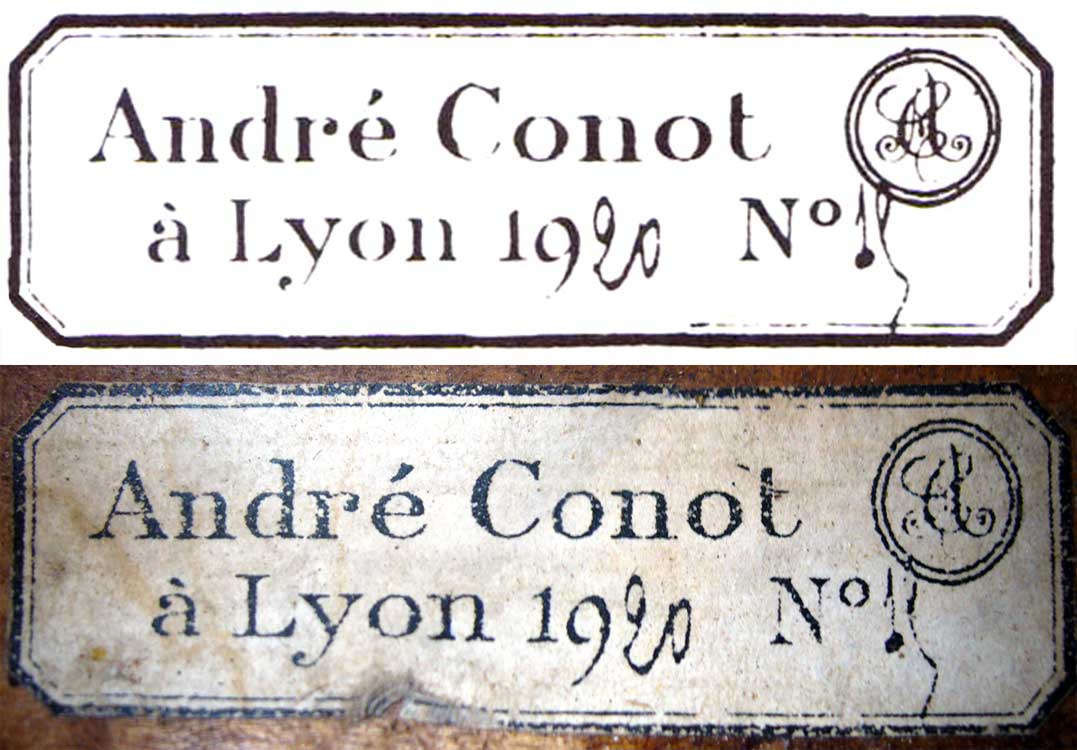 André Conot
à Lyon 1920 Nº
André Conot
à Lyon 1920 Nº